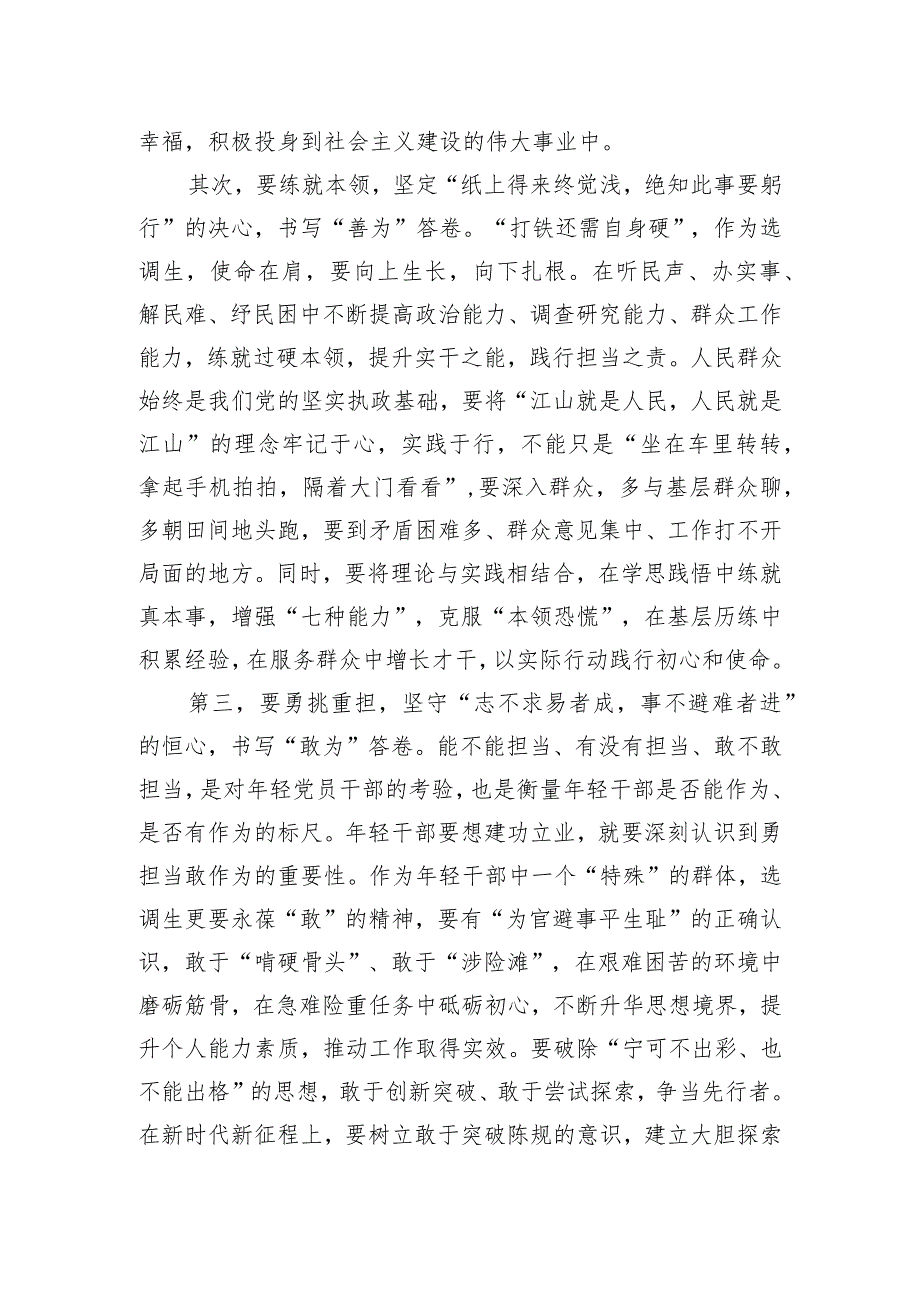 幸福，积极投身到社会主义建设的伟大事业中。
其次，要练就本领，坚定“纸上得来终觉浅，绝知此事要躬
行”的决心，书写“善为”答卷。“打铁还需自身硬”，作为选
调生，使命在肩，要向上生长，向下扎根。在听民声、办实事、
解民难、纾民困中不断提高政治能力、调查研究能力、群众工作
能力，练就过硬本领，提升实干之能，践行担当之责。人民群众
始终是我们党的坚实执政基础，要将“江山就是人民，人民就是
江山”的理念牢记于心，实践于行，不能只是“坐在车里转转，
拿起手机拍拍，隔着大门看看”,要深入群众，多与基层群众聊，
多朝田间地头跑，要到矛盾困难多、群众意见集中、工作打不开
局面的地方。同时，要将理论与实践相结合，在学思践悟中练就
真本事，增强“七种能力”，克服“本领恐慌”，在基层历练中
积累经验,在服务群众中增长才干,以实际行动践行初心和使命。
第三，要勇挑重担，坚守“志不求易者成，事不避难者进”
的恒心，书写“敢为”答卷。能不能担当、有没有担当、敢不敢
担当,是对年轻党员干部的考验,也是衡量年轻干部是否能作为、
是否有作为的标尺。年轻干部要想建功立业，就要深刻认识到勇
担当敢作为的重要性。作为年轻干部中一个“特殊”的群体，选
调生更要永葆“敢”的精神，要有“为官避事平生耻”的正确认
识，敢于“啃硬骨头”、敢于“涉险滩”，在艰难困苦的环境中
磨砺筋骨，在急难险重任务中砥砺初心，不断升华思想境界，提
升个人能力素质，推动工作取得实效。要破除“宁可不出彩、也
不能出格”的思想，敢于创新突破、敢于尝试探索，争当先行者。
在新时代新征程上，要树立敢于突破陈规的意识，建立大胆探索